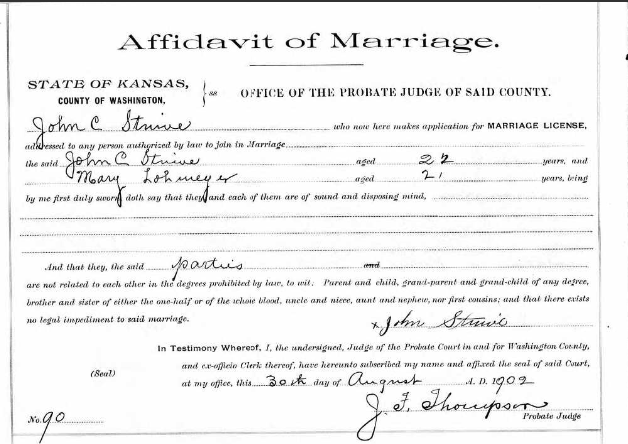 Affidavit of Marriage.
STATE OF KANSAS,
COUNTY OF WASHINGTON,
ss
OFFICE OF THE PROBATE JUDGE OF SAID COUNTY.
John C Struve who now here makes application for MARRIAGE LICENSE,
addressed to any person authorized by law to join in Marriage
the said John C Struve aged 22 years, and
Mary Lohmeyer aged 21 years, being
by me first duly sworn doth say that they and each of them are of sound and disposing mind,
And that they, the said parties and
are not related to each other in the degrees prohibited by law, to wit: Parent and child, grand-parent and grand-child of any degree,
brother and sister of either the one-half or of the whole blood, uncle and niece, aunt and nephew, nor first cousins; and that there exists
no legal impediment to said marriage.
x John Struve
In Testimony Whereof, I, the undersigned, Judge of the Probate Court in and for Washington County,
and ex-officio Clerk thereof, have hereunto subscribed my name and affixed the seal of said Court,
(Seal)
at my office, this 30th day of August A. D. 1902
J. F. Thompson
Probate Judge
No. 90